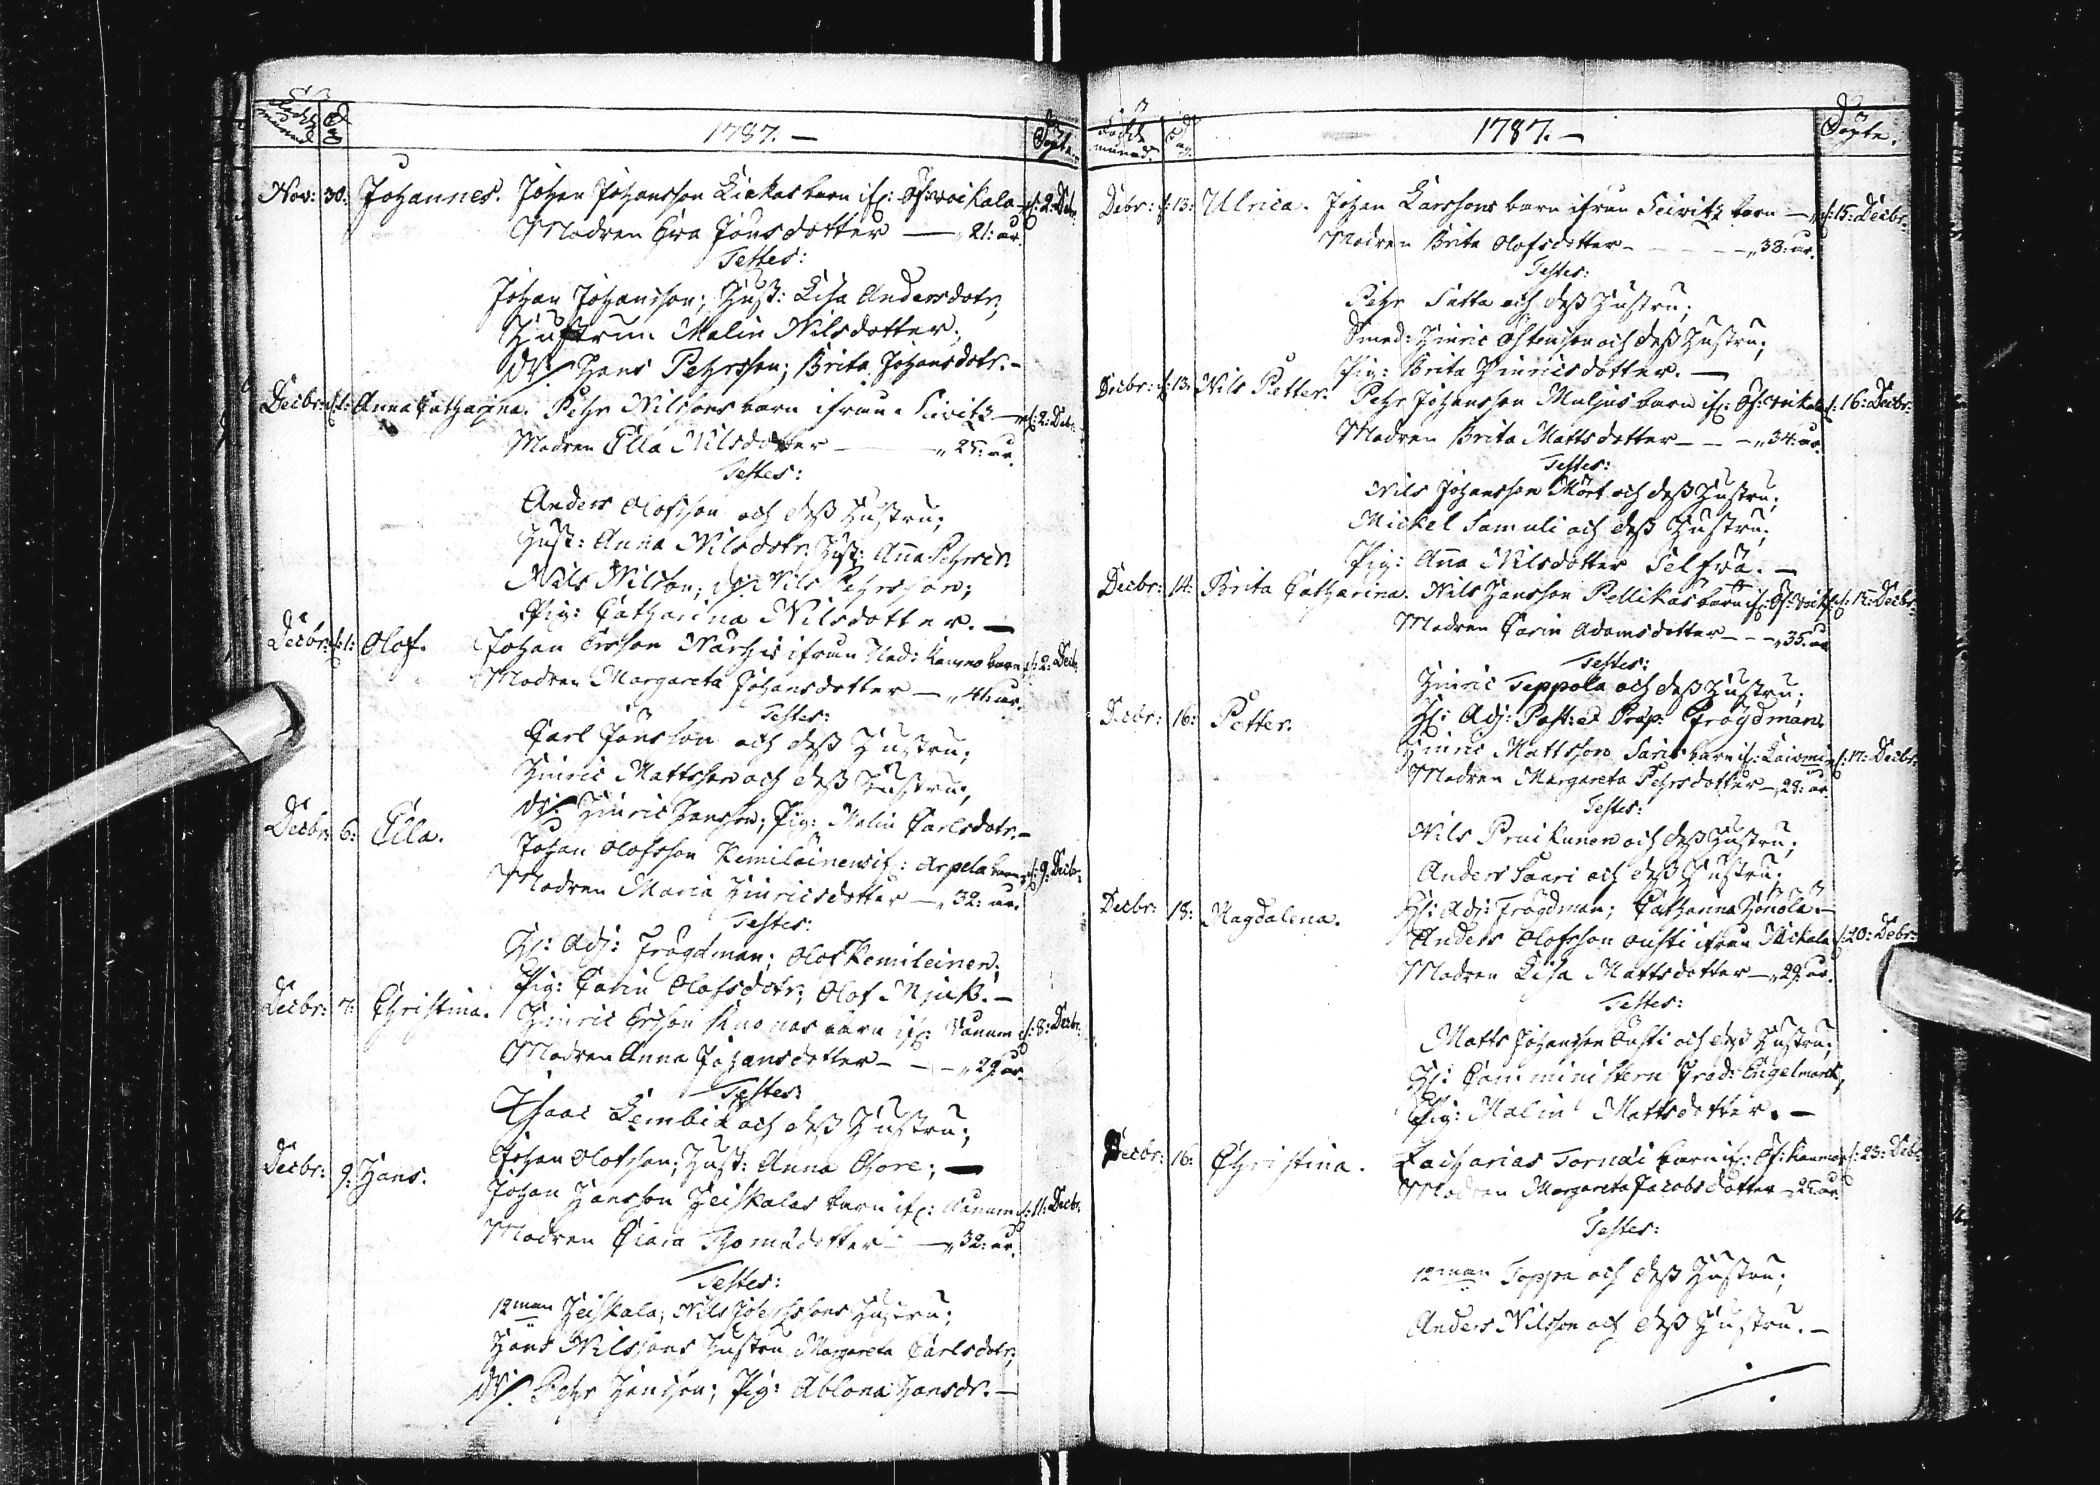 1787.—
Döpte.
Nov: 30: Johannes. Johan Johansson Kickas barn if: Öf: Woikala – d: 2: Decbr.
Modren Eva Jönsdotter — 21: år.
Testes:
Johan Johansson; Hust: Lisa Andersdotr;
Hustrun Malin Nilsdotter;
Dr: Hans Pehrsson; Brita Johansdotr. –
Decbr: d: 1: Anna Catharina. Pehr Nilssons barn ifrån Siwitz — d: 2: Decbr.
Modren Ella Nilsdotter — 25: år.
Testes:
Anders Olofsson och dess Hustru;
Hust: Anna Nilsdotr; Hust: Anna Pehrsdr.
Nils Nilsson; dr: Nils Pehrsson;
Pig: Catharina Nilsdotter. —
Decbr: d: 1: Olof. Johan Ersson Närhis ifrån Ned: Kaimo barn d: 2: Decbr.
Modren Margareta Johansdotter — 41: år.
Testes:
Carl Jönsson och dess Hustru;
Hinric Mattsson och dess Hustru;
Dr: Hinric Hansson; Pig: Malin Carlsdotr. –
Decbr: 6: Ella. Johan Olofsson Kemiläinens if: Arpela barn d: 9: Decbr.
Modren Maria Hinricsdotter — 32: år.
Testes:
Hr: Adj: Frögdman; Olof Kemileinen;
Pig: Carin Olofsdotr; Olof Njuk. –
Decbr: 7: Christina. Hinric Ersson barn if: Vänum d: 8: Decbr.
Modren Anna Johansdotter – – 29: år.
Testes:
Isaac Lembid och dess Hustru;
Johan Olofsson; Hust: Anna Thore; —
Decbr: 9: Hans. Johan Hansson Heiskalas barn if: Vänum d: 11: Decbr.
Modren Clara Thomädotter — 32: år.
Testes:
12man Heiskala; Nils Johanssons Hustru;
Hans Nilssons Hustru Margareta Carlsdotr;
Dr: Pehr Hansson; Pig: Ablona Hansdr. –
1787.—
Döpte.
Debr: d: 13: Ulrica. Johan Larssons barn ifrån Seiwitz barn — d: 15: Decbr.
Modren Brita Olofsdotter – – – – 38: år.
Testes:
Pehr Satta och dess Hustru;
Smed: Hinric Östensson och dess Hustru;
Pig: Brita Hinricsdotter. —
Decbr: d: 13: Nils Petter. Pehr Johansson Muljus barn if: Öf: Woikala d: 16: Decbr.
Modren Brita Mattsdotter – – – 34: år.
Testes:
Nils Johansson Mört och dess Hustru;
Mickel Samuli och dess Hustru;
Pig: Anna Nilsdotter Selfva. —
Decbr: 14: Brita Catharina. Nils Hansson Pellikas barn if: Öf: Woik: d: 15: Decbr.
Modren Carin Adamsdotter – – – 35: år
Testes:
Hinric Teppola och dess Hustru;
Hr: Adj: Past: et Præp: Frögdman
Decbr: 16: Petter. Hinric Mattsson Saris barn if: Laiwmi d: 17: Decbr.
Modren Margareta Pehrsdotter — 28: år.
Testes:
Nils Pruikunen och dess Hustru;
Anders Saari och dess Hustru;
Hr: Adj: Frögdman; Catharina Könölä. –
Decbr: 18: Magdalena. Anders Olofsson Ousti ifrån Kickala d: 20: Decbr.
Modren Lisa Mattsdotter — 29: år.
Testes:
Matts Johansson Ousti och dess Hustru;
Hr: Comministern Fred: Engelmarck;
Pig: Malin Mattsdotter. —
Decbr: 16: Christina. Zacharias Tornäi barn if: Öf: Kaimo d: 23: Decbr.
Modren Margareta Jacobsdotter – 25: år.
Testes:
12man Toppa och dess Hustru;
Anders Nilsson och dess Hustru. –